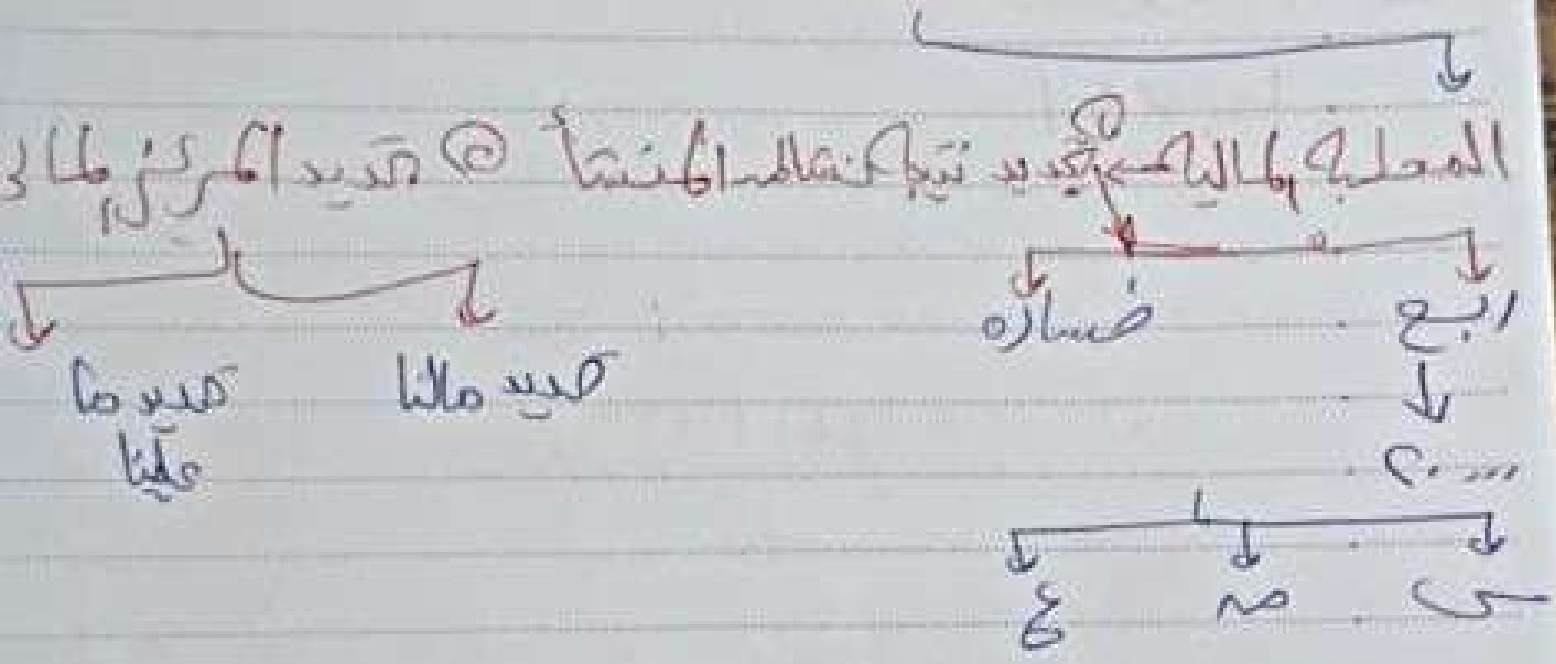 المحلية والمالية ① تحديد نتيجة نشاط المنشأ ② تحديد المركز المالي
ربح خساره
تحديد مالنا تحديد ما
علينا
٢٠,,,
س ص ع